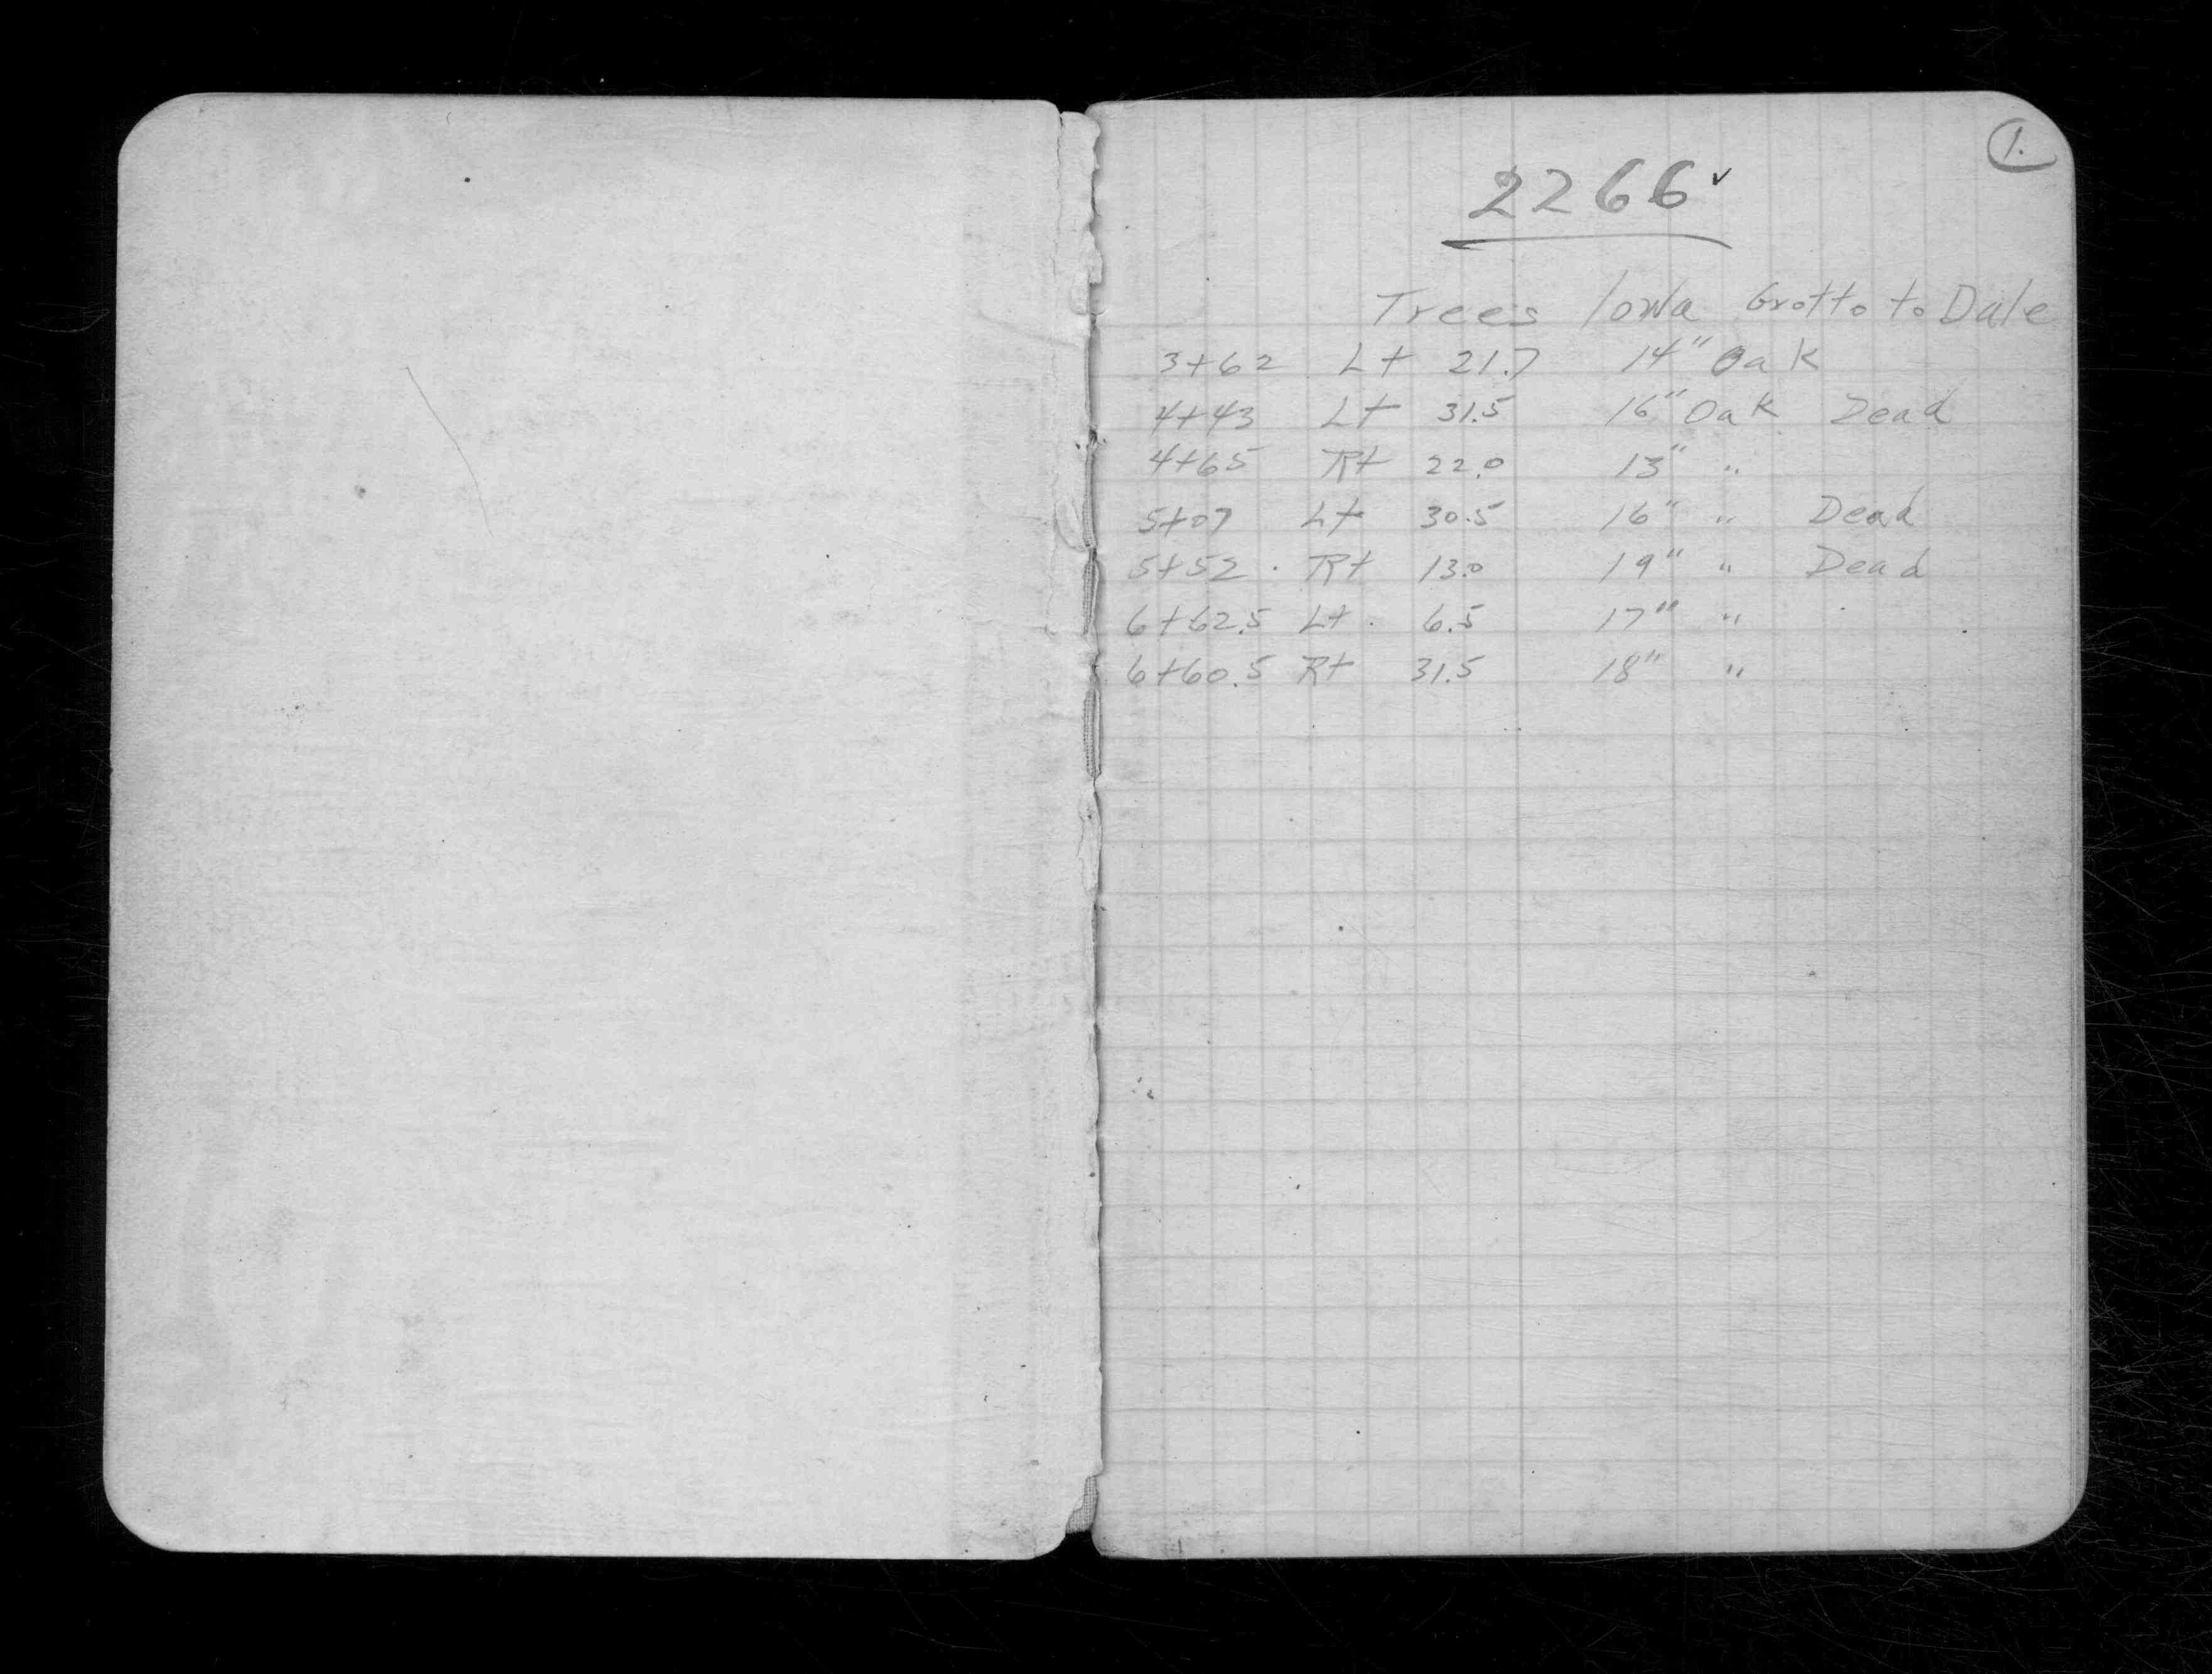 1.
2266 ✓
Trees Iowa Grotto to Dale
3+62 Lt 21.7 14" Oak
4+43 Lt 31.5 16" Oak Dead
4+65 Rt 22.0 13" "
5+07 Lt 30.5 16" " Dead
5+52 Rt 13.0 19" " Dead
6+62.5 Lt 6.5 17" "
6+60.5 Rt 31.5 18" "